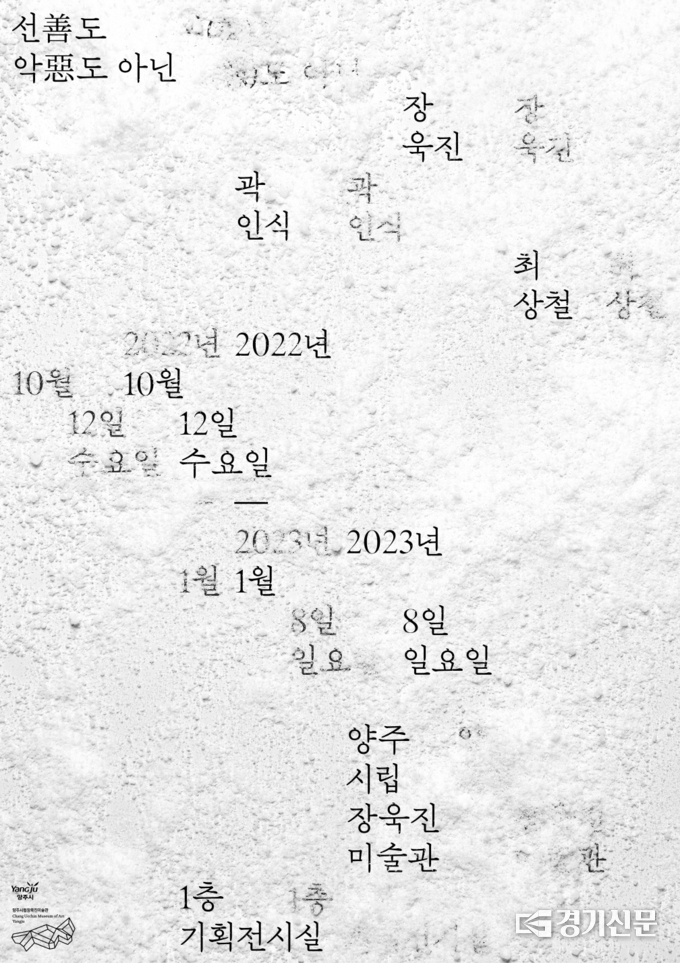 선善도
악惡도 아닌
장 장
욱진 욱진
곽 곽
인식 인식
최
상철 상철
2022년 2022년
10월 10월
12일 12일
수요일 수요일
—
2023년 2023년
1월 1월
8일 8일
일요 일요일
양주
시립
장욱진
미술관 관
1층 1층
기획전시실
Yangju
양주시
양주시립장욱진미술관
Chang Ucchin Museum of Art
Yangju
경기신문